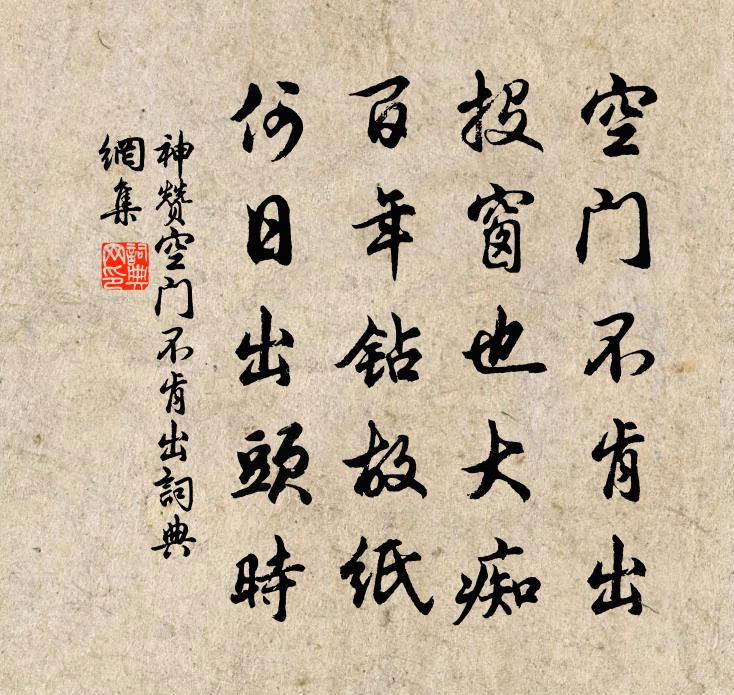 空门不肯出
投窗也大痴
百年钻故纸
何日出頭時
神赞空门不肯出詞典
網集
詞典
网印